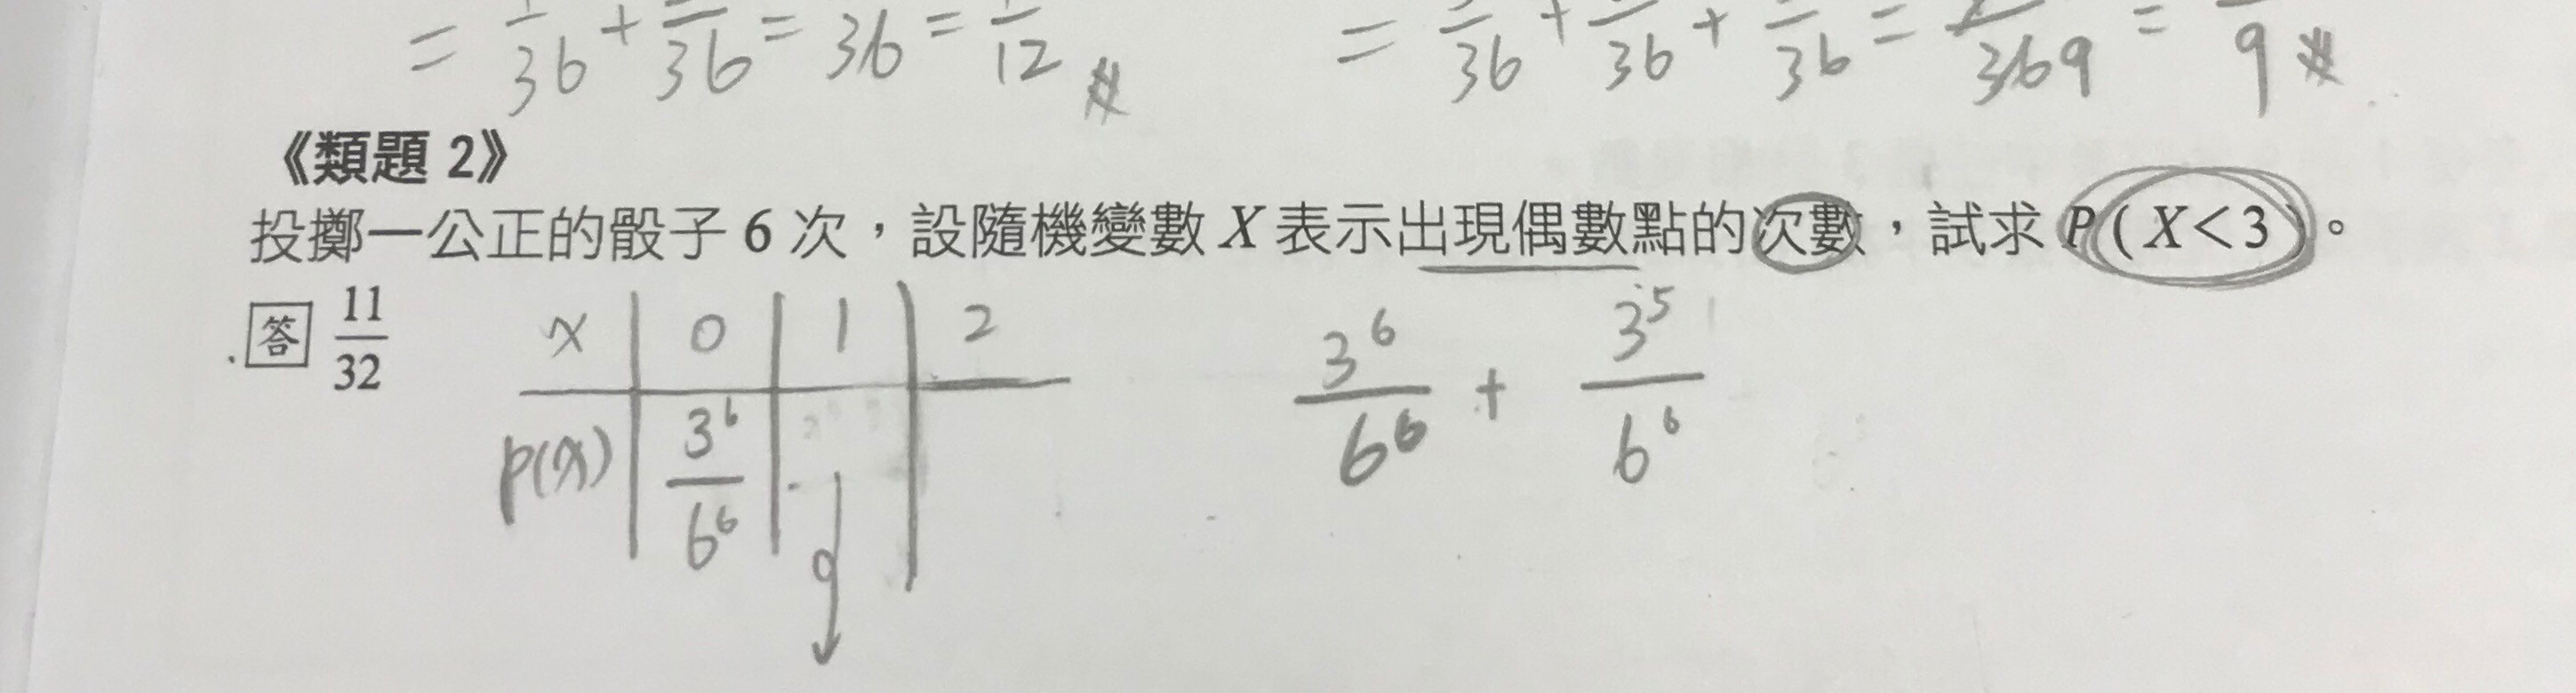 = 1/36 + /36 = 36 = 1/12
= /36 + /36 + /36 = /369 = /9
《類題 2》
投擲一公正的骰子 6 次，設隨機變數 X 表示出現偶數點的次數，試求 P ( X < 3 )。
答 11/32
x | 0 | 1 | 2
p(x) | 3^6/6^6
3^6/6^6 + 3^5/6^6